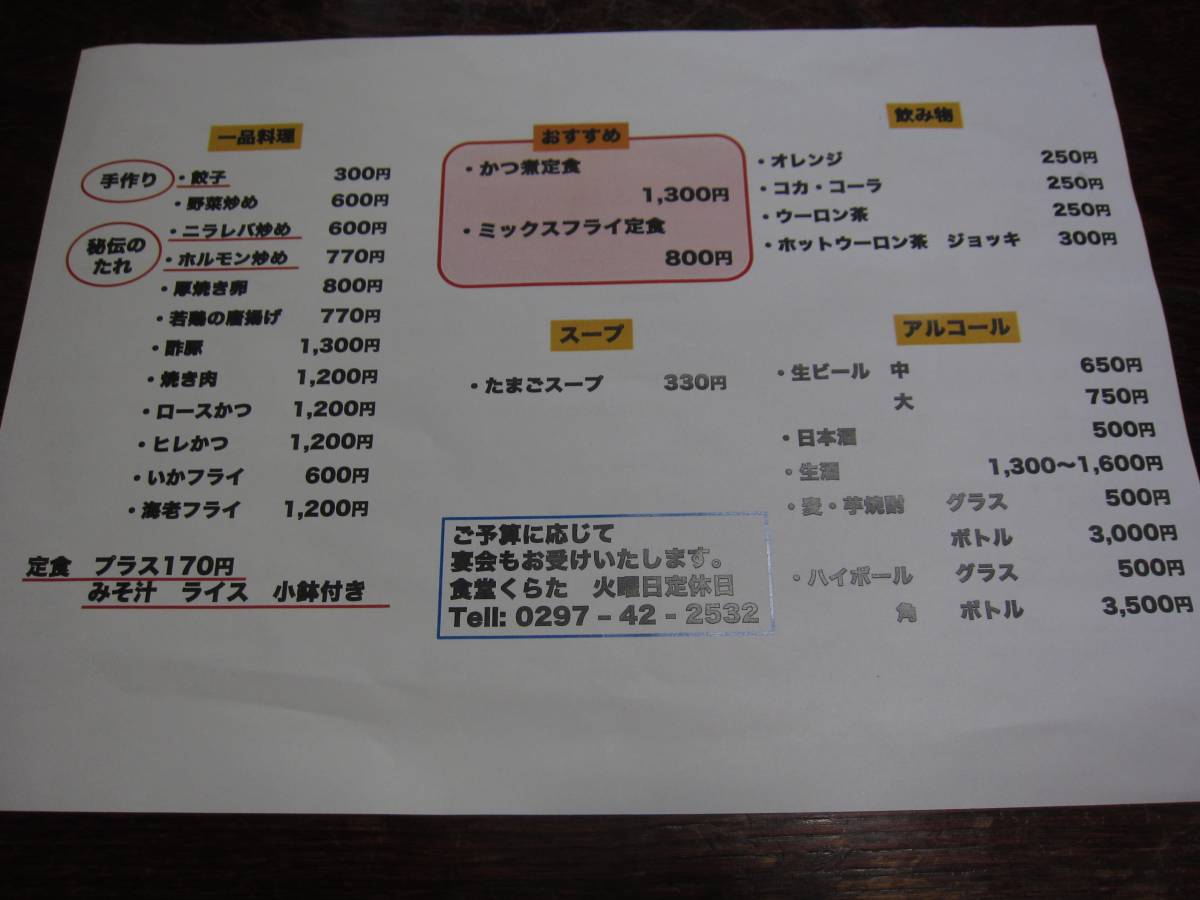 一品料理
手作り
・餃子 300円
・野菜炒め 600円
・ニラレバ炒め 600円
秘伝の
たれ
・ホルモン炒め 770円
・厚焼き卵 800円
・若鶏の唐揚げ 770円
・酢豚 1,300円
・焼き肉 1,200円
・ロースかつ 1,200円
・ヒレかつ 1,200円
・いかフライ 600円
・海老フライ 1,200円
定食 プラス170円
みそ汁 ライス 小鉢付き
おすすめ
・かつ煮定食
1,300円
・ミックスフライ定食
800円
スープ
・たまごスープ 330円
ご予算に応じて
宴会もお受けいたします。
食堂くらた 火曜日定休日
Tell: 0297 – 42 - 2532
飲み物
・オレンジ 250円
・コカ・コーラ 250円
・ウーロン茶 250円
・ホットウーロン茶 ジョッキ 300円
アルコール
・生ビール 中 650円
大 750円
・日本酒 500円
・生酒 1,300〜1,600円
・麦・芋焼酎 グラス 500円
ボトル 3,000円
・ハイボール グラス 500円
角 ボトル 3,500円